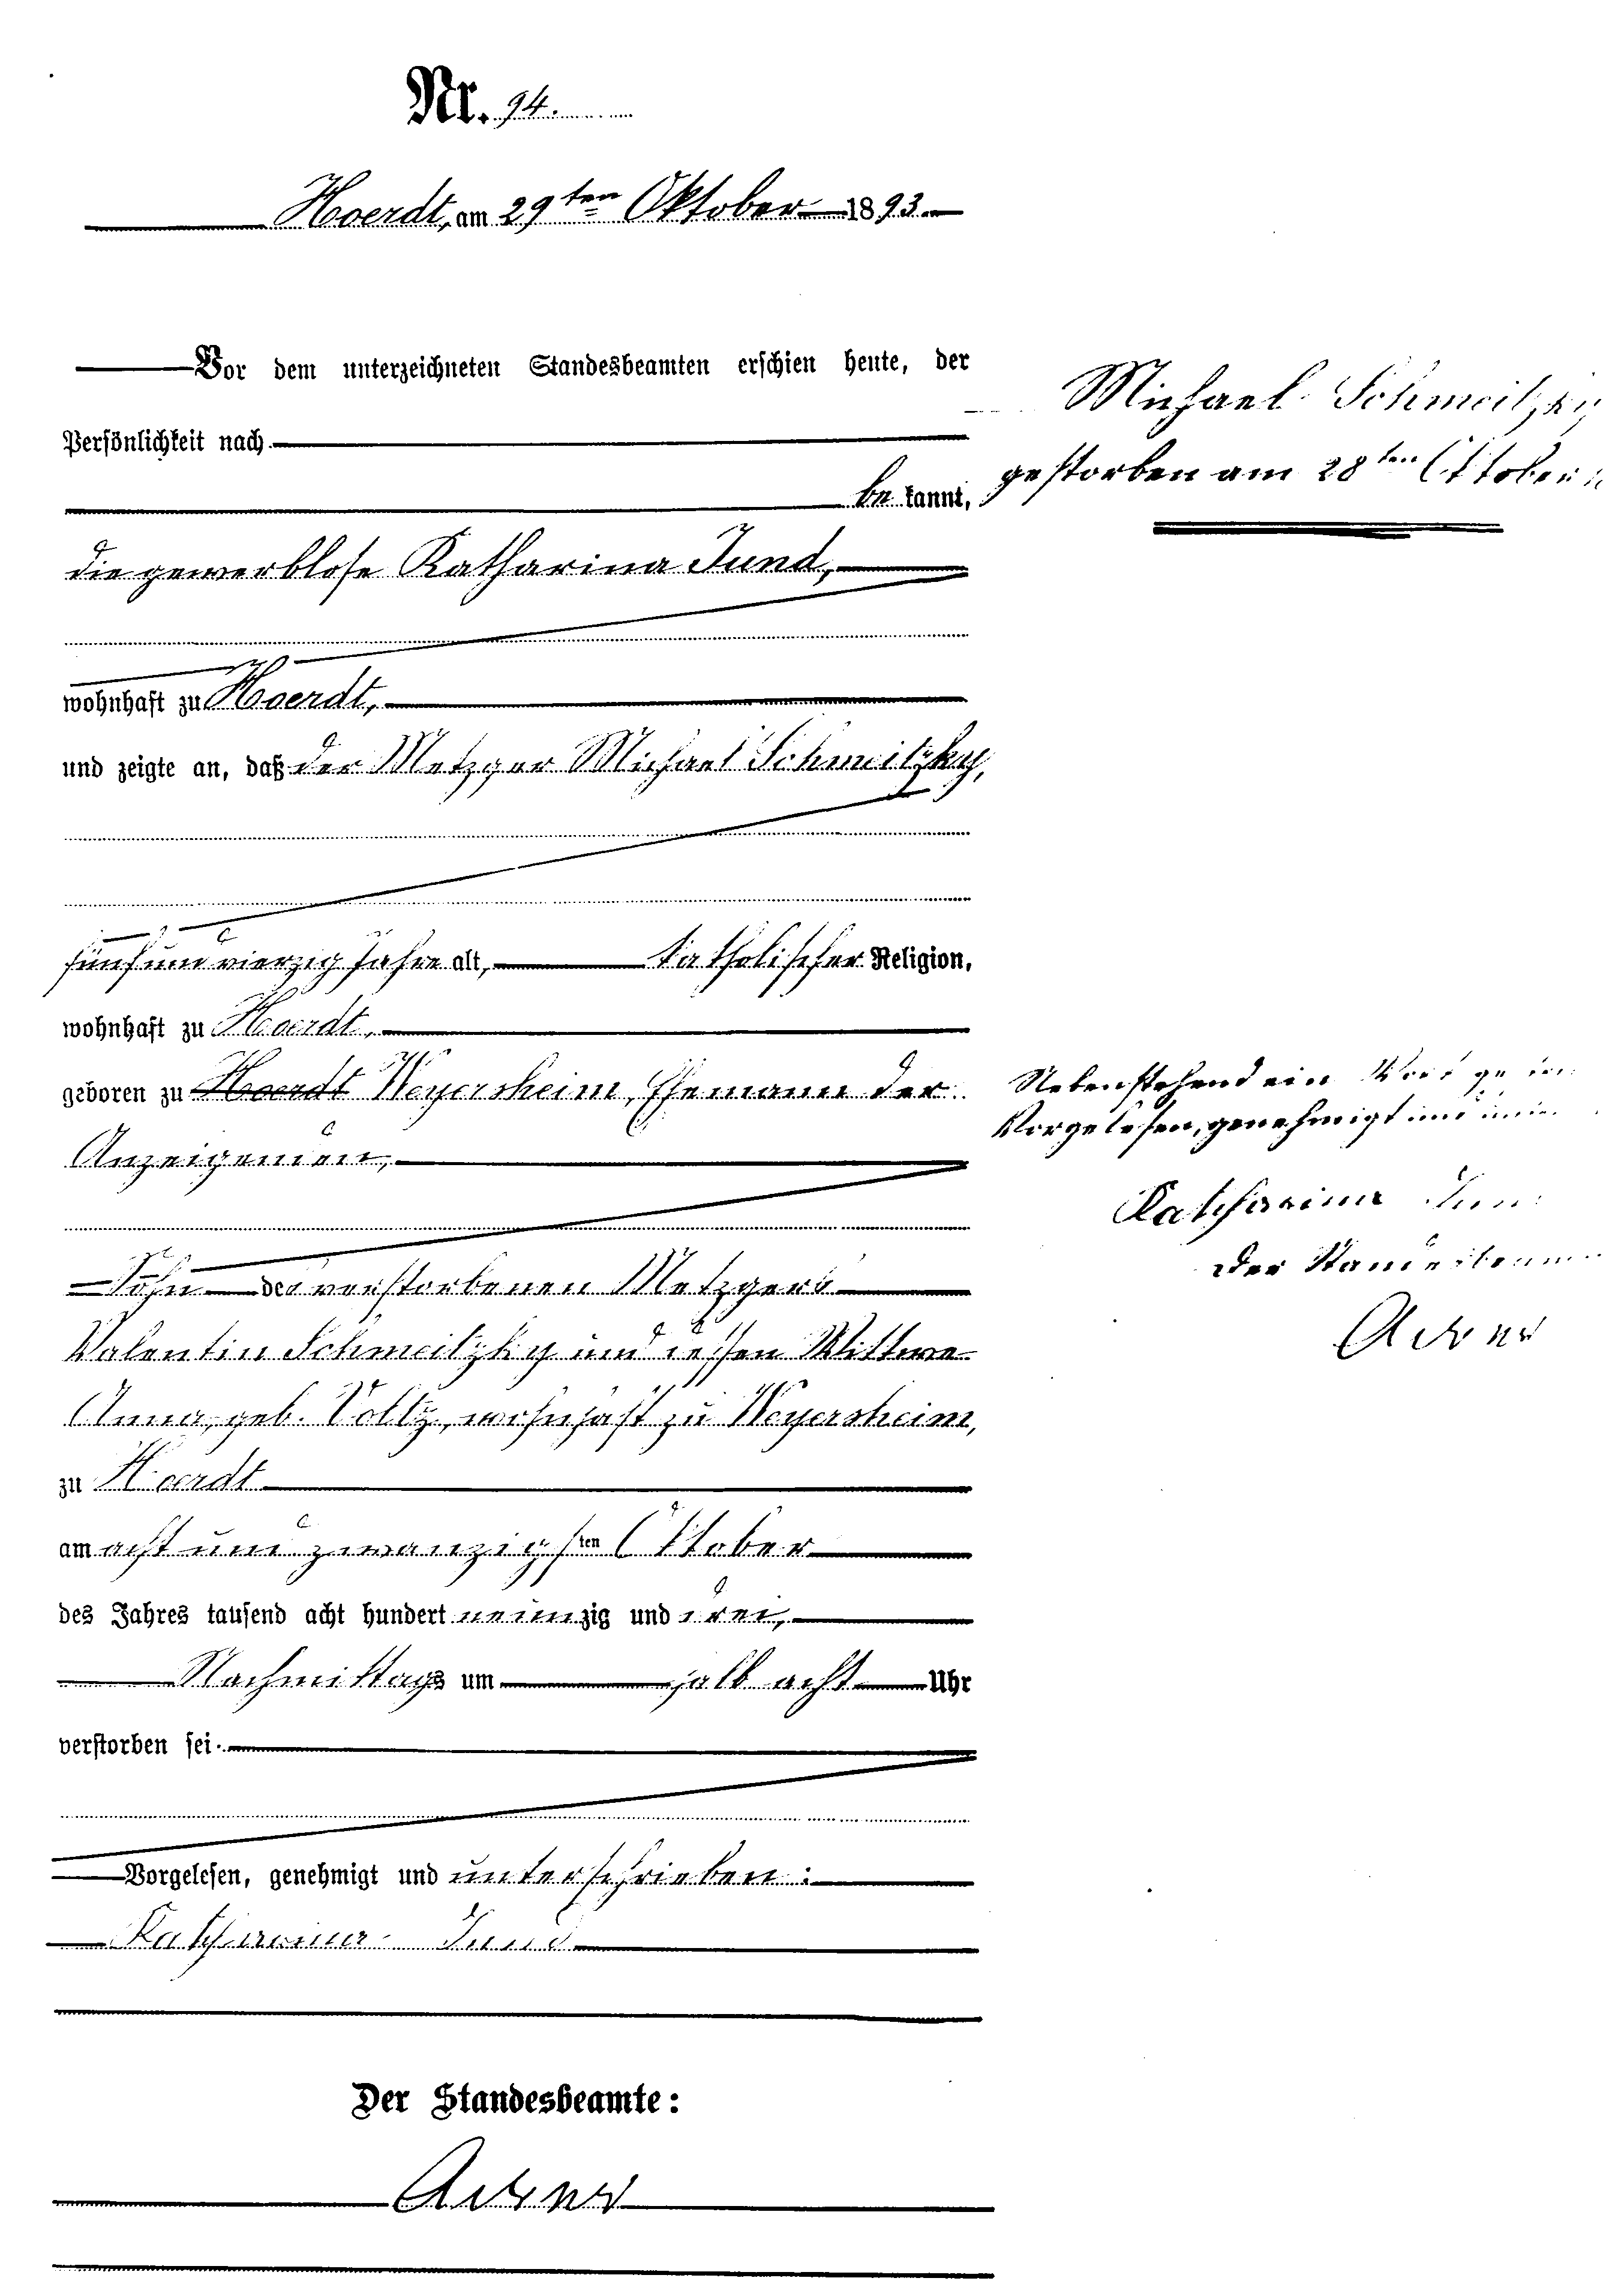 Nr. 94.
Hoerdt, am 29ten Oktober 1893.
Vor dem unterzeichneten Standesbeamten erschien heute, der
Persönlichkeit nach
bekannt,
die gewerblose Katharina Jund,
wohnhaft zu Hoerdt,
und zeigte an, daß der Metzger Michael Schmeitzky,
fünfundvierzig Jahre alt, katholischer Religion,
wohnhaft zu Hoerdt,
geboren zu Hoerdt Weyersheim, Ehemann der
Anzeigenden,
Sohn des verstorbenen Metzgers
Valentin Schmeitzky und dessen Wittwe
Anna, geb. Voltz, wohnhaft zu Weyersheim,
zu Hoerdt
am acht und zwanzigsten Oktober
des Jahres tausend acht hundert neunzig und drei,
Nachmittags um halb acht Uhr
verstorben sei.
Vorgelesen, genehmigt und unterschrieben:
Katharina Jund
Der Standesbeamte:
Michael Schmeitzky
gestorben am 28ten Oktober
Nebenstehend ein Wort
Vorgelesen, genehmigt und
Katharina Jun
Der Standesbeam